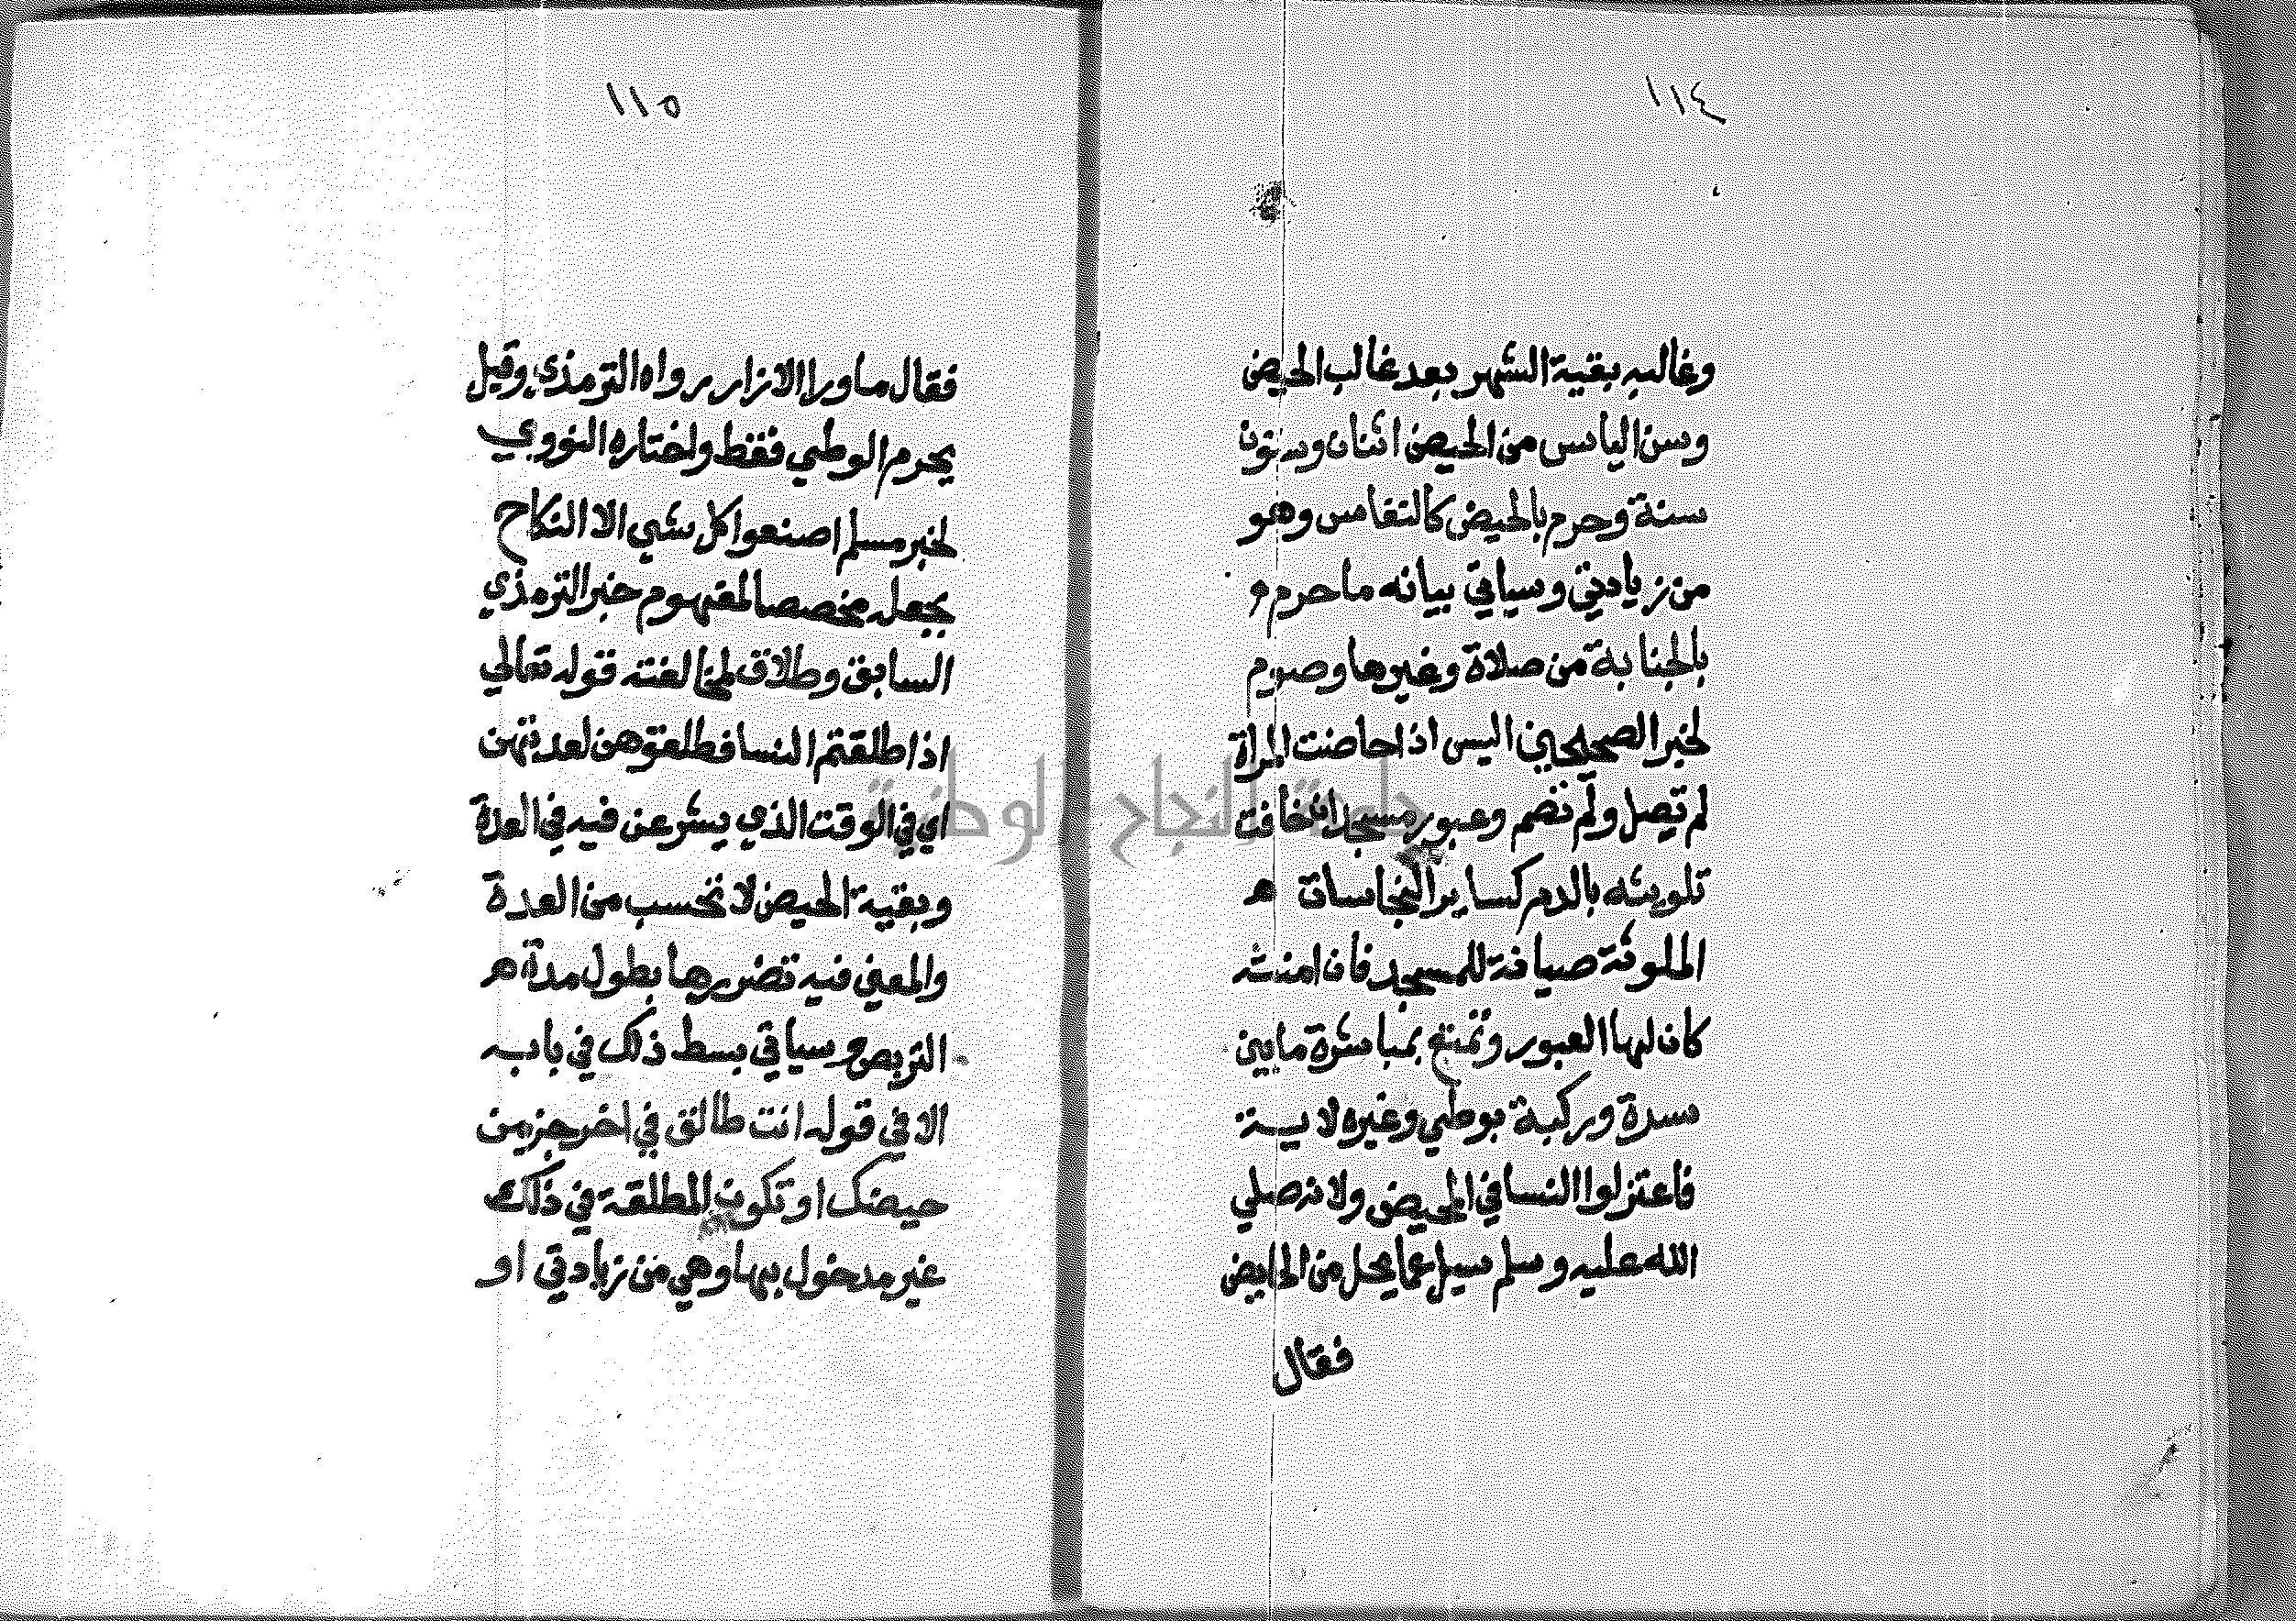 ١١٤
وغالبه بقية الشهر بعد غالب الحيض
وسن الياس من الحيض اثنان وستون
سنة وحرم بالحيض كالنفاس وهو
من زيادتي وسياتي بيانه ما حرم
بالجنابة من صلاة وغيرها وصوم
لخبر الصحيحين اليس اذا حاضت المراة
لم تصل ولم تصم وعبور مسجد ان خافت
تلويثه بالدم كساير النجاسات
الملوثة صيانة للمسجد فان امنته
كان لها العبور وتمتع بمباشرة ما بين
سرة وركبة بوطي وغيره لاية
فاعتزلوا النسا في المحيض ولانه صلي
الله عليه وسلم سيل عما يحل من الحايض
فقال
١١٥
فقال ما ورا الازار رواه الترمذي وقيل
يحرم الوطي فقط واختاره النووي
لخبر مسلم اصنعوا كل شي الا النكاح
بجعله مخصصا لمفهوم خبر الترمذي
السابق وطلاق لمخالفته قوله تعالي
اذا طلقتم النسا فطلقوهن لعدتهن
اي في الوقت الذي يشرعن فيه في العدة
وبقية الحيض لا تحسب من العدة
والمعني فيه تضررها بطول مدة
التربص وسياتي بسط ذلك في بابه
الا في قوله انت طالق في اخر جز من
حيضك او تكون المطلقة في ذلك
غير مدخول بها وهي من زيادتي او
جامعة النجاح الوطنية